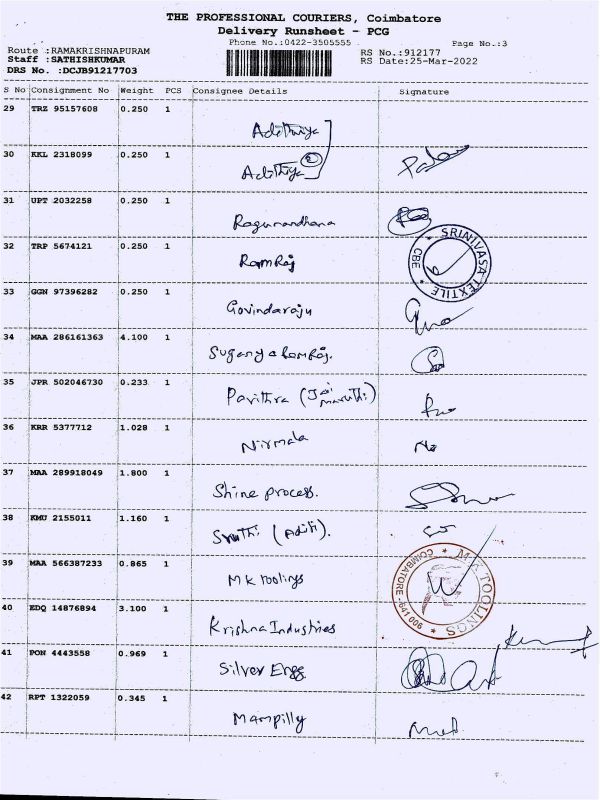 THE PROFESSIONAL COURIERS, Coimbatore
Delivery Runsheet - PCG
Phone No.:0422-3505555
Page No.:3
Route :RAMAKRISHNAPURAM
RS No.:912177
Staff :SATHISHKUMAR
RS Date:25-Mar-2022
DRS No. :DCJB91217703
S No Consignment No Weight PCS Consignee Details Signature
29 TRZ 95157608 0.250 1
Adithiya
30 KKL 2318099 0.250 1
Adithiya
31 UPT 2032258 0.250 1
Ragunandhana
32 TRP 5674121 0.250 1
RamRaj
SRINIVASA TEXTILE * CBE *
33 GGN 97396282 0.250 1
Govindaraju
34 MAA 286161363 4.100 1
Suganya RamRaj.
35 JPR 502046730 0.233 1
Pavithra (Jai Maruthi)
36 KRR 5377712 1.028 1
Nirmala
37 MAA 289918049 1.800 1
Shine process.
38 KMU 2155011 1.160 1
Sruthi (Aditi).
39 MAA 566387233 0.865 1
M K toolings
* M K TOOLINGS * COIMBATORE - 641 006
40 EDQ 14876894 3.100 1
Krishna Industries
41 PON 4443558 0.969 1
Silver Engg.
42 RPT 1322059 0.345 1
Mampilly